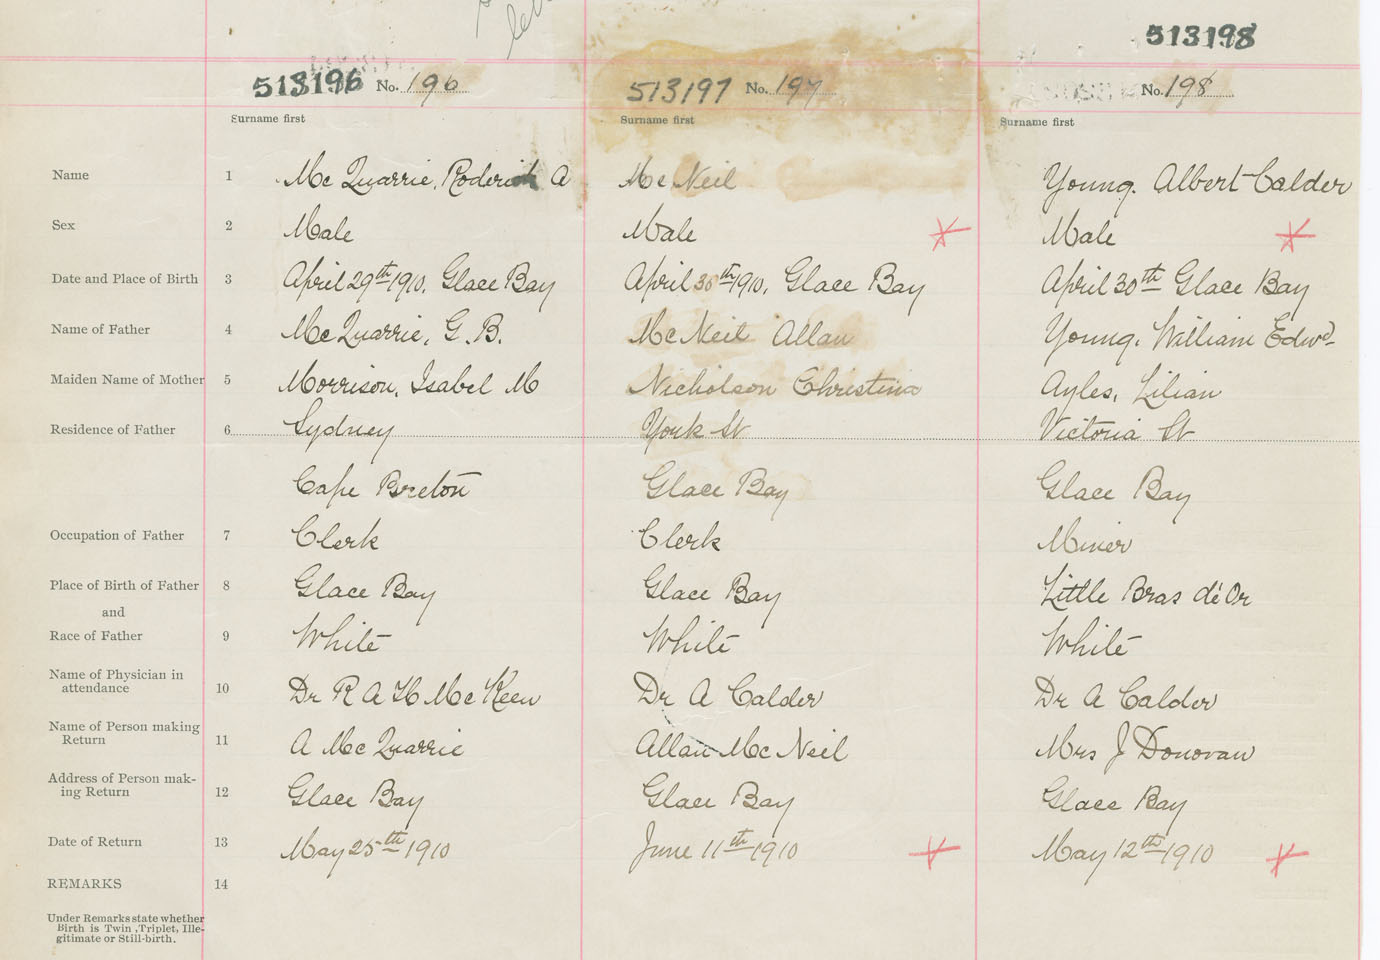 513198
513196 No. 196 513197 No. 197 No. 198
Surname first Surname first Surname first
Name 1 McQuarrie, Roderick A McNeil Young. Albert Calder
Sex 2 Male Male Male
Date and Place of Birth 3 April 29th 1910, Glace Bay April 30th 1910, Glace Bay April 30th Glace Bay
Name of Father 4 McQuarrie, G. B. McNeil Allan Young, William Edwd
Maiden Name of Mother 5 Morrison, Isabel M Nicholson Christina Ayles, Lilian
Residence of Father 6 Sydney York St Victoria St
Cape Breton Glace Bay Glace Bay
Occupation of Father 7 Clerk Clerk Miner
Place of Birth of Father 8 Glace Bay Glace Bay Little Bras d'Or
and
Race of Father 9 White White White
Name of Physician in
attendance 10 Dr R A H McKeen Dr A Calder Dr A Calder
Name of Person making
Return 11 A McQuarrie Allan McNeil Mrs J Donovan
Address of Person mak-
ing Return 12 Glace Bay Glace Bay Glace Bay
Date of Return 13 May 25th 1910 June 11th 1910 May 12th 1910
REMARKS 14
Under Remarks state whether
Birth is Twin, Triplet, Ille-
gitimate or Still-birth.